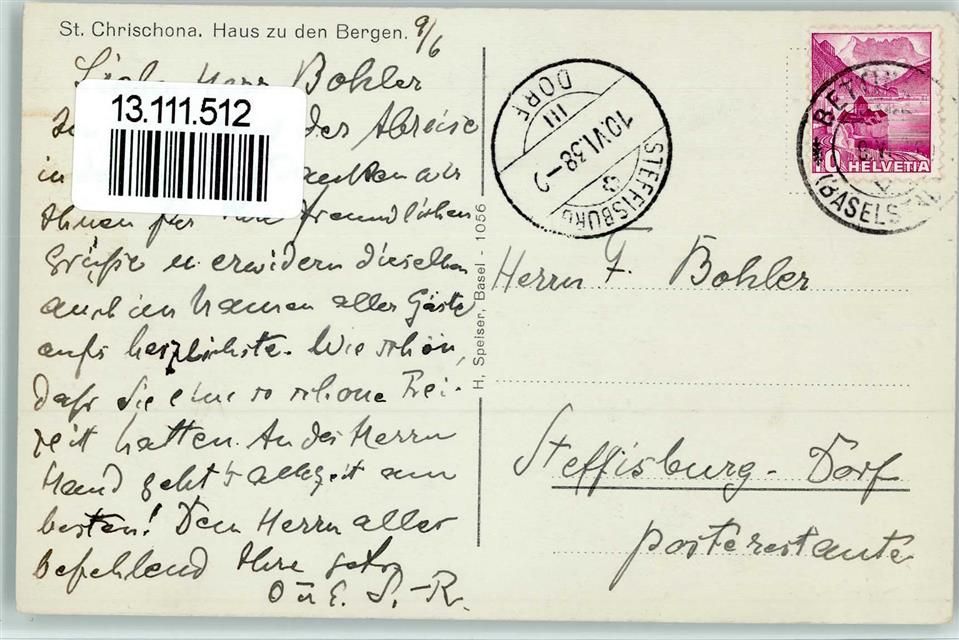 St. Chrischona. Haus zu den Bergen.
9/6
Herr Bohler
der Abreise
in danken wir
Ihnen für Ihre freundlichen
Grüße u. erwidern dieselben
auch im Namen aller Gäste
aufs herzlichste. Wie schön,
daß Sie eine so schöne Frei-
zeit hatten. An des Herrn
Hand geht's allezeit am
besten! Dem Herrn alles
befehlend Ihre
O u E. S.-R.
13.111.512
H. Speiser, Basel - 1056
STEFFISBURG
DORF
III
10.VI.38-9
HELVETIA
10
BETTINGEN
(BASELSTADT)
Herrn F. Bohler
Steffisburg-Dorf
posterestante